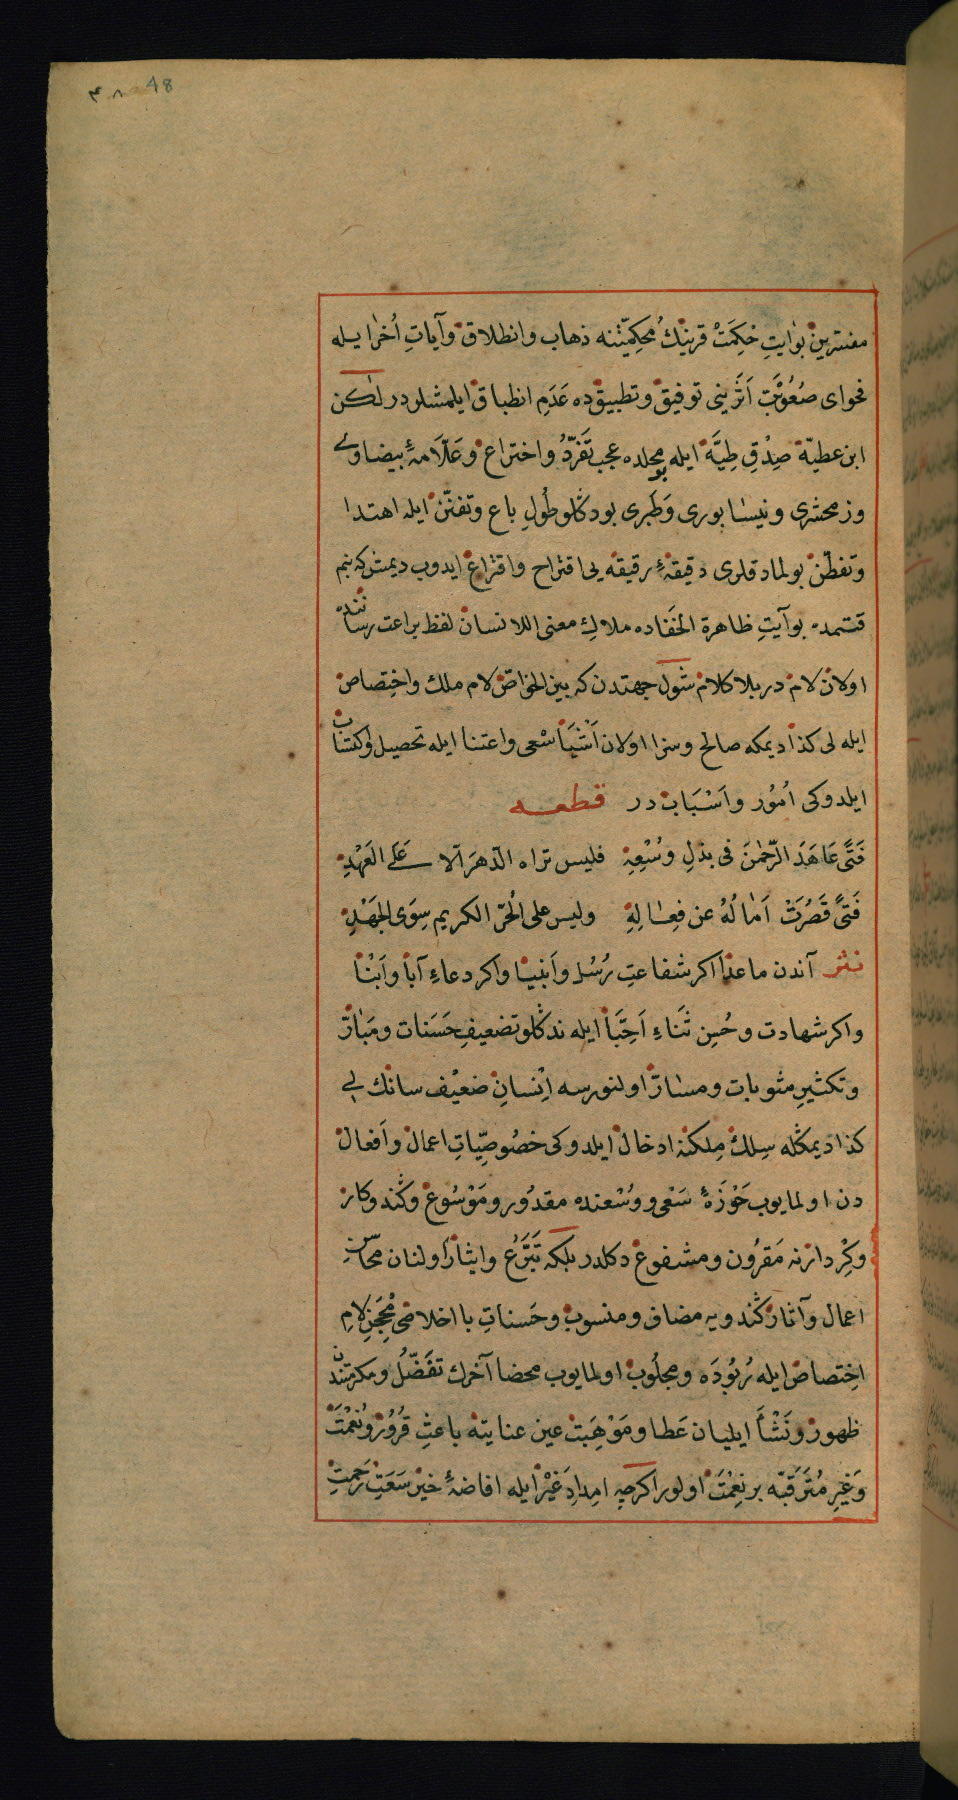 ٤٨ 48
مفسّرین بو آیتِ حِکمَتْ قرینك مُحکمیّتنه ذهاب وانطلاق وآیاتِ اُخرا یله
فحوای صُعُوبَتْ اَثَرینی توفیق وتطبیقده عَدَمِ انطباق ایلمشلردر لٰکن
ابن عطیّة صِدْقِ طِیَّة ایله بو محلده عجب تَفَرُّدْ واختراع وعَلّامهٔ بیضاوی
وزمحشری ونیسابوری وَطَبری بودکلو طُولِ باع وتفنّن ایله اهتدا
وتفطّن بولمادقلری دقیقهٔ رقیقه یی اقتراح واقتراع ایدوب دیمش که بنم
قتمده بو آیتِ ظاهرة الخفاده ملاكِ معنی اللانسان لفظ براعت رساننده
اولان لام در بلا کلام شول جهتدن که بین الخواصّ لام ملك واختصاص
ایله لی کذا دیمکه صالح وسزا اولان اَشْیَا سْعی واعتنا ایله تحصیل واکتساب
ایلدوکی اُمُور واَسْبَاب در قطعه
فَتًی عَاهَدَ الرّحْمٰنَ فی بذلِ وُسْعِهِ فلیس تراه الدّهرَ الّا عَلَی العَهْدِ
فَتًی قَصُرَتْ اَمَالُهُ عن فِعَالِهِ ولیس علی الحُرّ الکریم سِوَی الجَهْدِ
نثر آندن ماعدا اکر شفاعتِ رُسُل واَنبیا واکر دعاءِ آبا واَبْنَا
واکر شهادت وحُسِن ثَناءِ اَحِبَّا ایله ندکلو تضعیفِ حَسَنات ومَبَارّ
وتکثیرِ مثوبات ومسارّ اولنورسه اِنْسانِ ضعیْف سانك لی
کذا دیمکله سِلك مِلکنه ادخال ایلدوکی خصُوصیّاتِ اعمال واَفعال
دن اولمایوب حَوْزَهٔ سَعْی ووُسْعنده مقدُور ومَوْسُوع وکندو کار
وکِرْدارنه مَقرُون ومشفوع دکلدر بلکه تَبَرُّع وایثار اولنان محاسنِ
اعمال وآثار کندویه مضاف ومنسوب وحَسناتِ با اخلاضی مُجَّزِ لامِ
اختصاص ایله رُبُودَه ومجلُوب اولمایوب محضا آخرك تفَضّلُ ومکرمتندن
ظهور ونَشْأَ ایلیان عَطا ومَوْهِبَت عین عنایته باعثِ قُرُوز ونُعْمَتْ
وَغیرِ مُتَرَقبّه بر نِعْمَتْ اولور اکرچه امدادِ غَیْر ایله افاضهٔ خیر سَعَتِ رَحمتِ